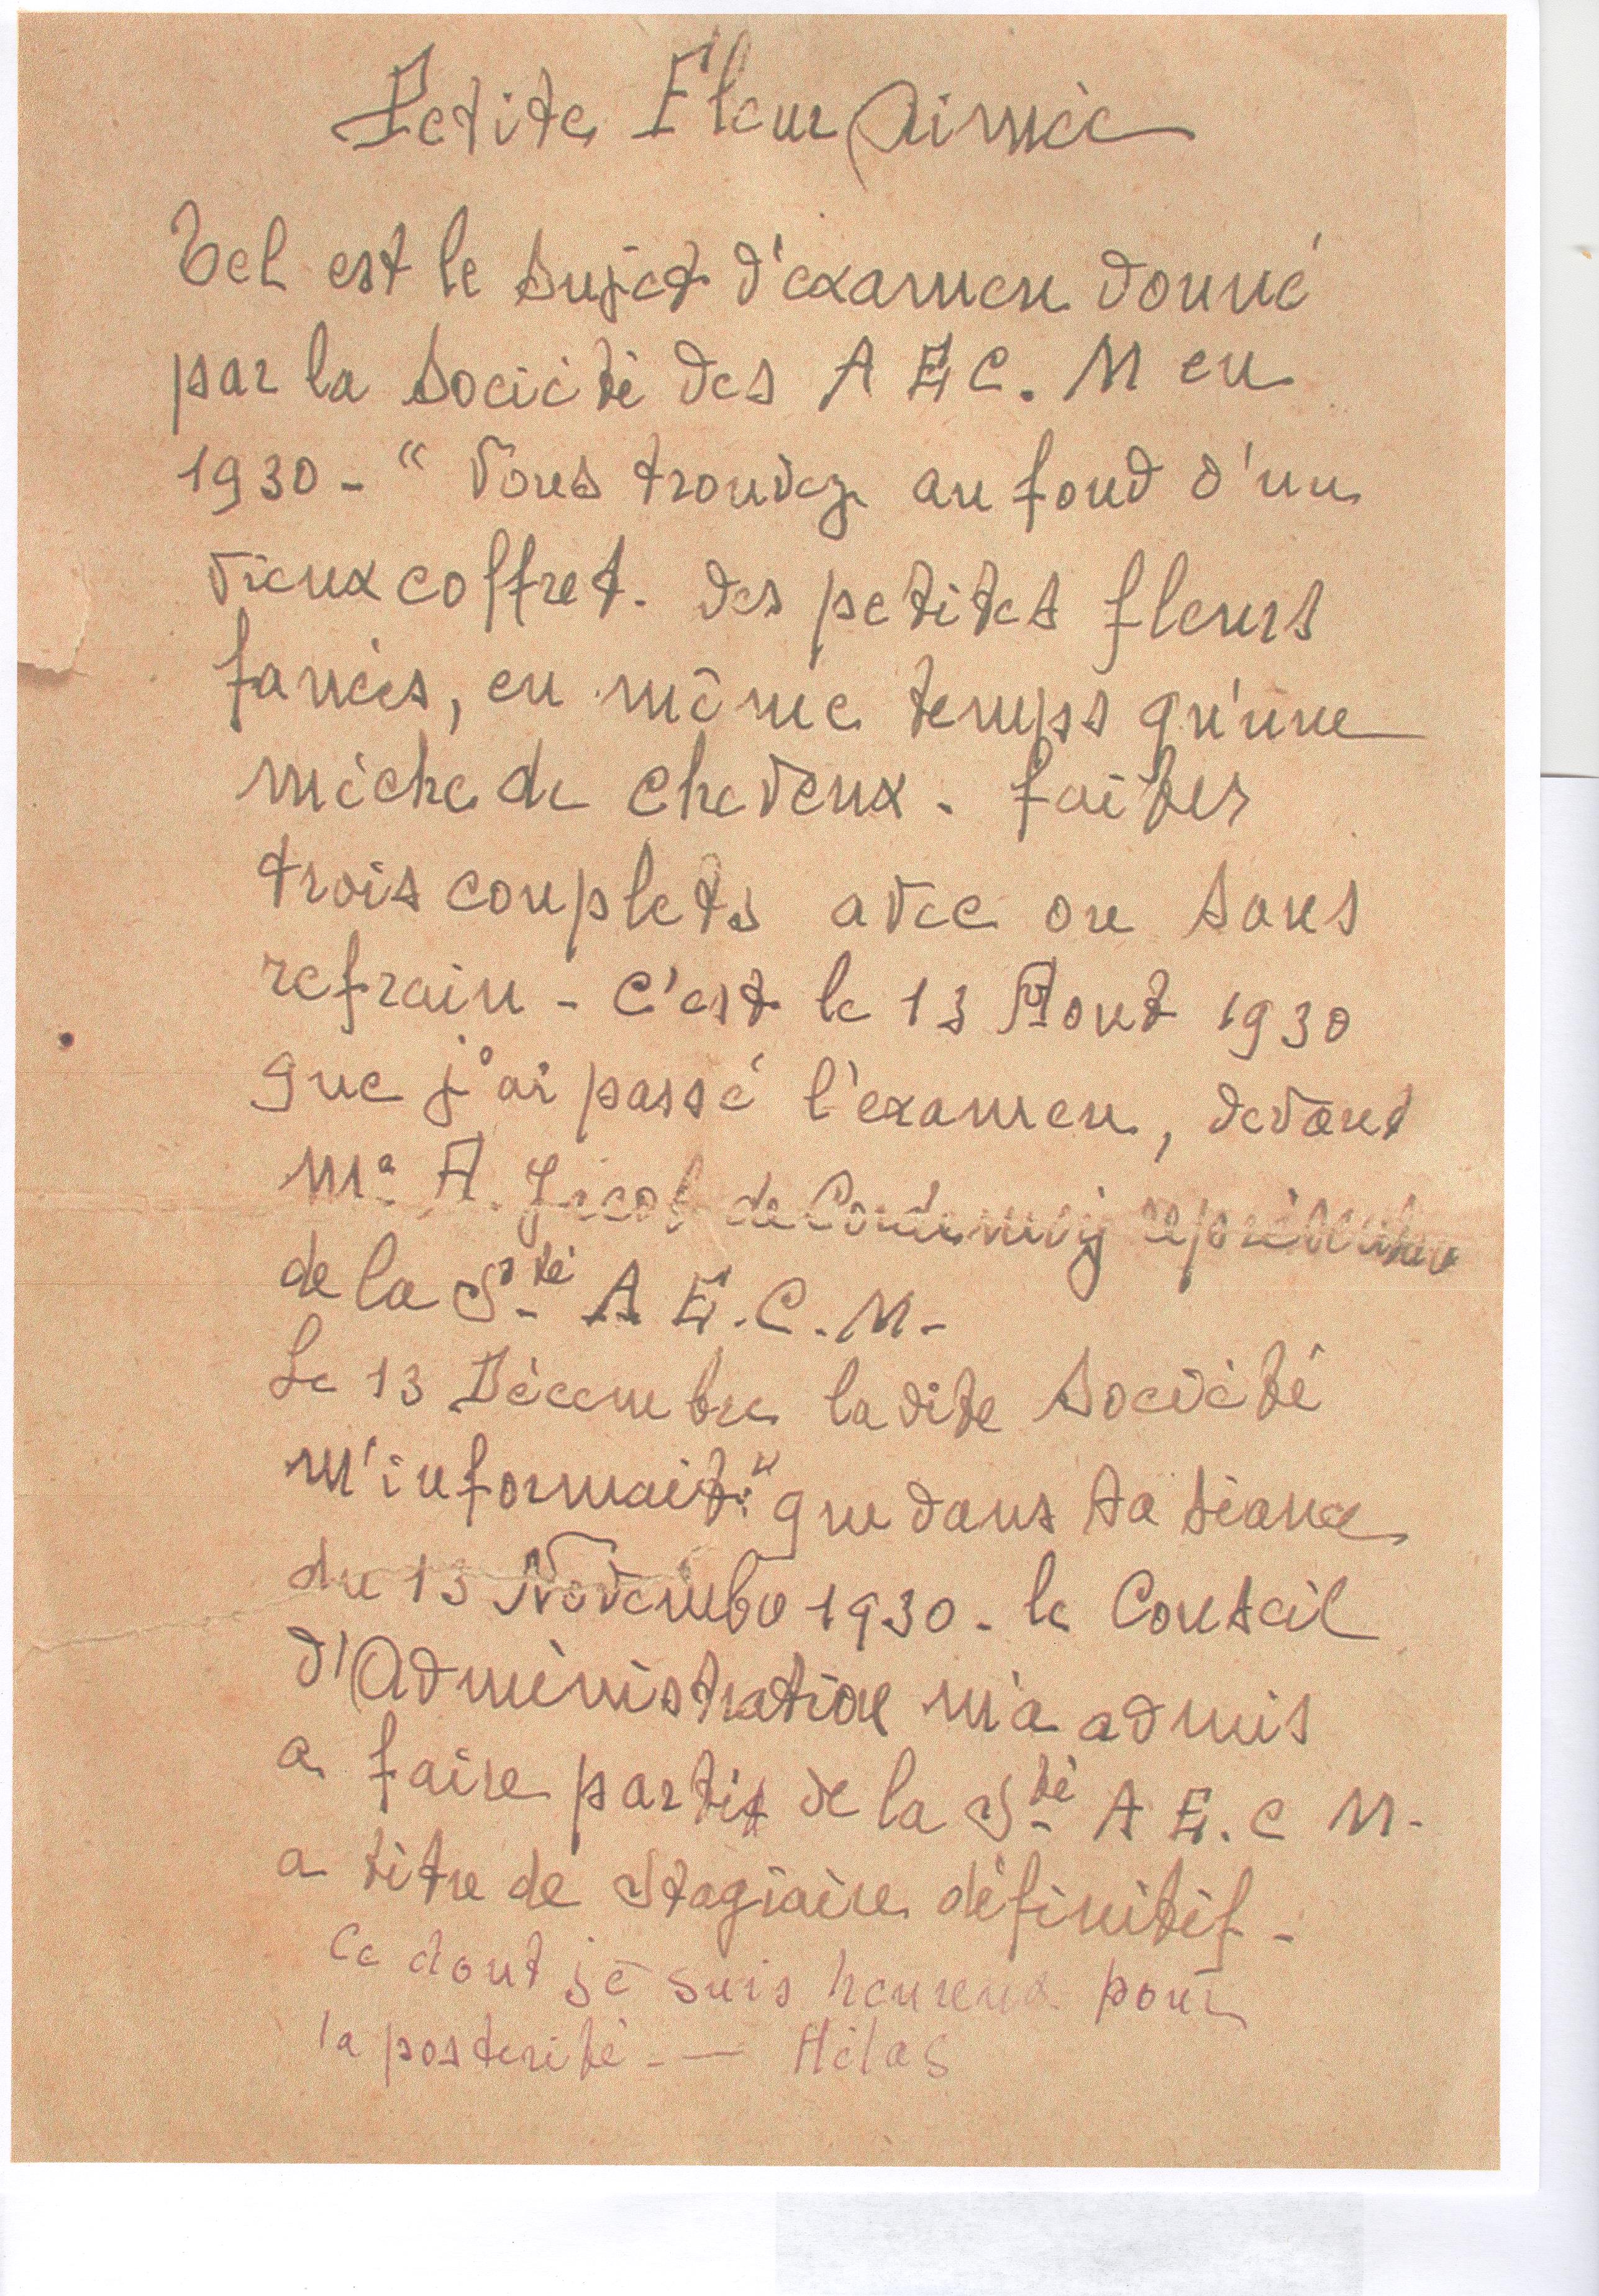 Petite Fleur Aimée
Tel est le sujet d'examen donné
par la société des A E C. M en
1930 - " Vous trouvez au fond d'un
vieux coffret. des petites fleurs
fanées, en même temps qu'une
mèche de cheveux. faites
trois couplets avec ou sans
refrain - C'est le 13 Aout 1930
que j'ai passé l'examen, devant
Mr. A. Jacob de Cordemoy
de la Sté A E. C. M -
Le 13 Décembre ladite Société
m'informait: " que dans sa séance
du 13 Novembre 1930 - le Conseil
d'Administration m'a admis
a faire partie de la Sté A E. C M -
a titre de Stagiaire définitif -
Ce dont je suis heureux pour
la posterité - — Hélas